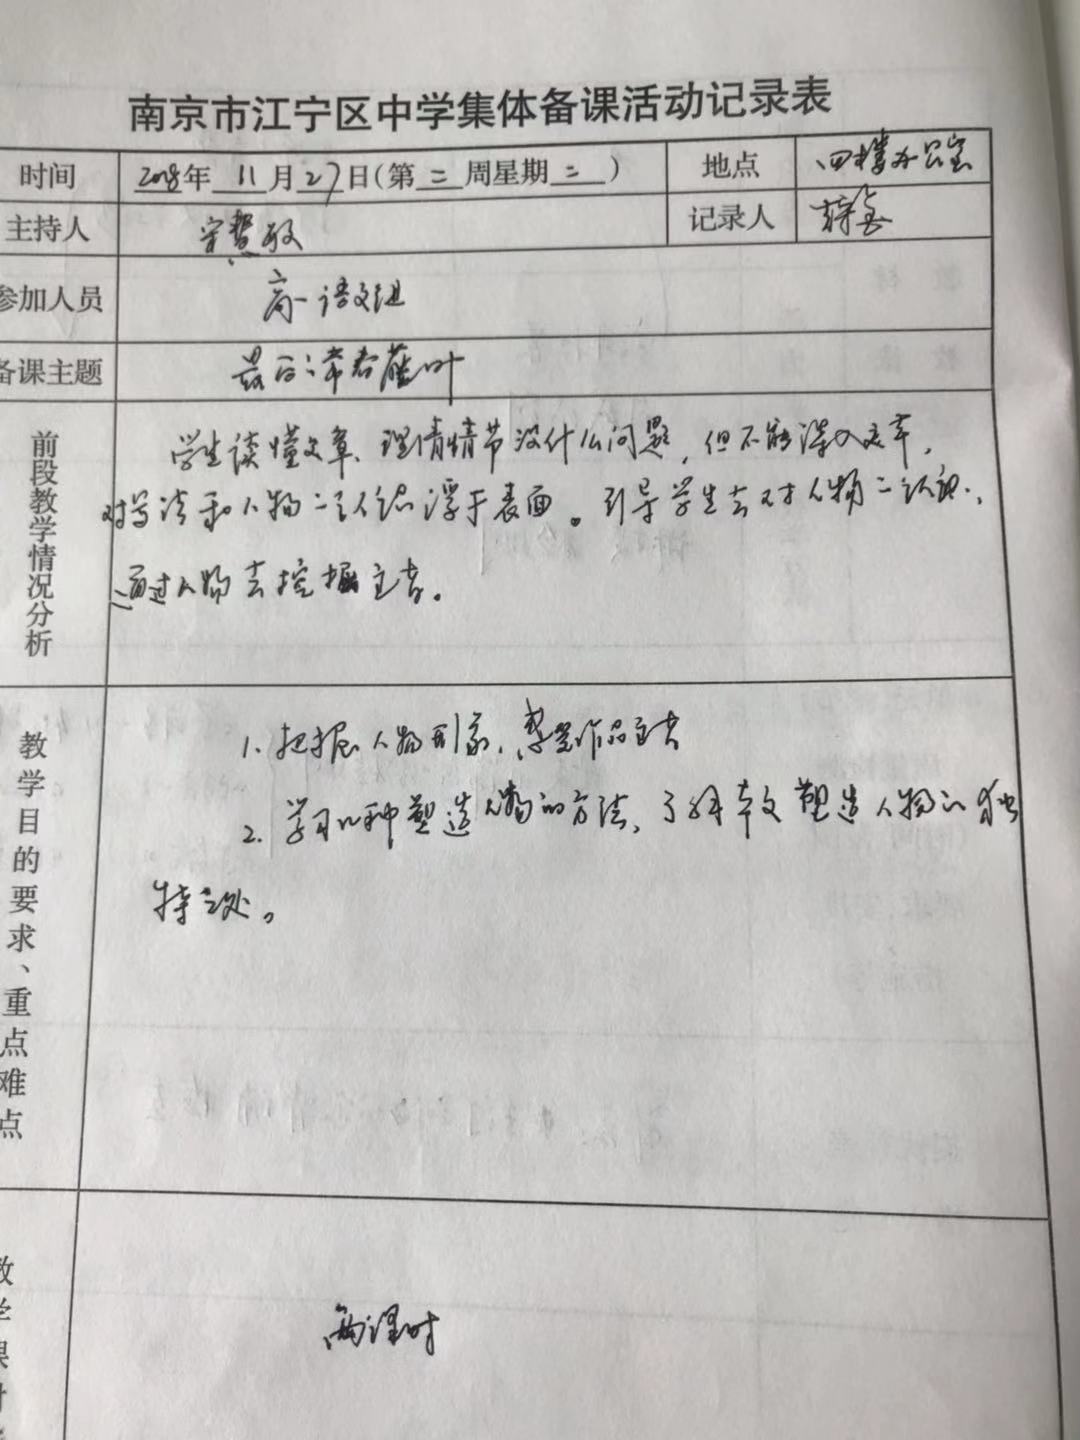 南京市江宁区中学集体备课活动记录表
时间 2018年 11月27日(第 二 周星期 二 ) 地点 四楼办公室
主持人 宋慧敏 记录人
参加人员 高一语文组
备课主题 最后的常春藤叶
前段教学情况分析
学生读懂文章、理清情节没什么问题,但不能深入文章,
对写法和人物的认识浮于表面。引导学生去对人物的认识,
通过人物去挖掘主旨。
教学目的要求、重点难点
1. 把握人物形象,感受作品主旨
2. 学习几种塑造人物的方法,了解本文塑造人物的独
特之处。
教学课时
两课时